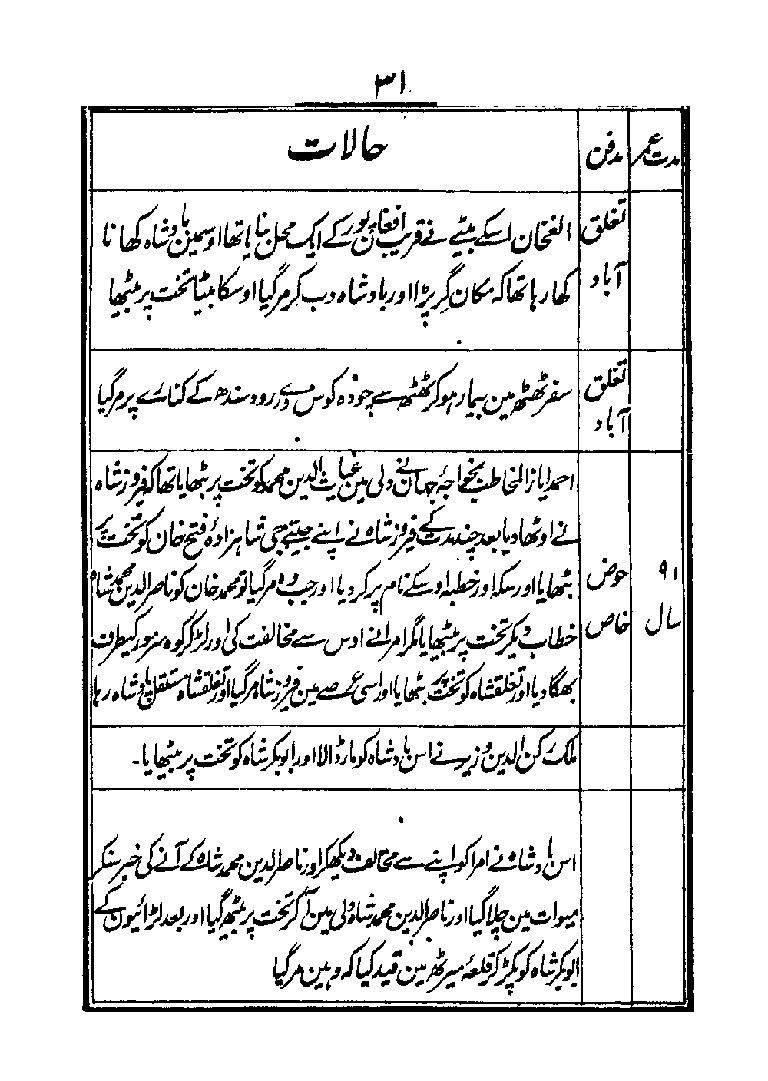 ۳۱
مدت عمر
مدفن
حالات
تغلق
آباد
الغخان اسکے بیٹے نے قریب افغان پور کے ایک محل بنایا تھا اوسمین بادشاہ کھانا
کھا رہا تھا کہ مکان گر پڑا اور بادشاہ دب کر مر گیا اوسکا بیٹا تخت پر بیٹھا
تغلق
آباد
سفر ٹھٹھ مین بیمار ہو کر ٹھٹھ سے چودہ کوس ورے رود سندھ کے کنارے پر مر گیا
۹۱
سال
حوض
خاص
احمد ایاز المخاطب بخواجہ جہان نے دلی مین غیاث الدین محمد کو تخت پر بٹھایا تھا کہ فیروز شاہ
نے اوٹھا دیا بعد چند مدت کے فیروز شاہ نے اپنے جیتے جی شاہزادہ فتح خان کو تخت پر
بٹھایا اور سکہ اور خطبہ اوسکے نام پر کر دیا اور جب وہ مر گیا تو محمد خان کو ناصر الدین محمد شاہ
خطاب دیکر تخت پر بیٹھایا مگر امرا نے اوس سے مخالفت کی اور لڑکر کوہ سرمور کیطرف
بھگا دیا اور تغلقشاہ کو تخت پر بٹھایا اور اسی عرصے مین فیروز شاہ مر گیا اور تغلقشاہ مستقل بادشاہ رہا
ملک رکن الدین وزیر نے اس بادشاہ کو مار ڈالا اور ابوبکر شاہ کو تخت پر بیٹھایا۔
اس بادشاہ نے امرا کو اپنے سے مخالف دیکھکر اور ناصر الدین محمد شاہ کے آنے کی خبر سنکر
میوات مین چلا گیا اور ناصر الدین محمد شاہ دلی مین آکر تخت پر بیٹھ گیا اور بعد لڑائیون کے
ابوبکر شاہ کو پکڑ کر قلعہ میرٹھ مین قید کیا کہ وہین مر گیا